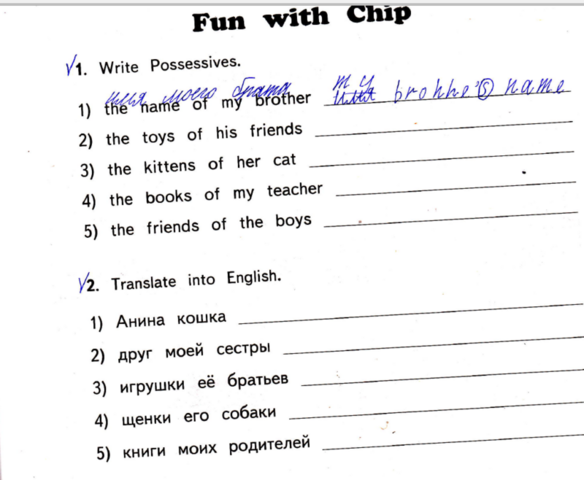 Fun with Chip
√1. Write Possessives.
имя моего брата
1) the name of my brother my brohhe's name
2) the toys of his friends
3) the kittens of her cat
4) the books of my teacher
5) the friends of the boys
√2. Translate into English.
1) Анина кошка
2) друг моей сестры
3) игрушки её братьев
4) щенки его собаки
5) книги моих родителей